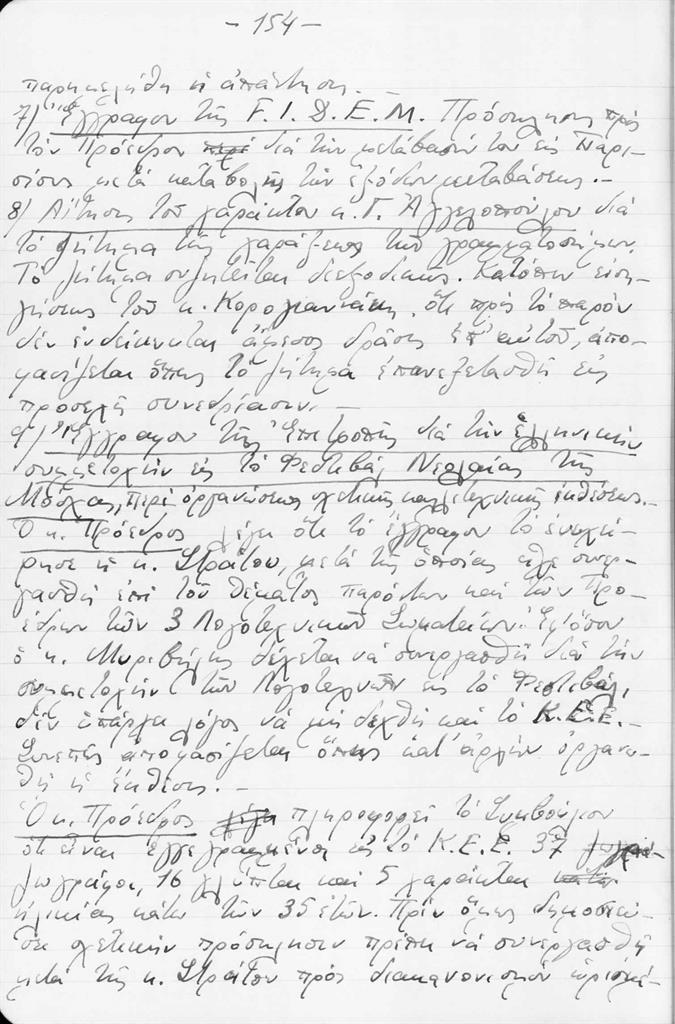 - 154 -
παρηκελήθη ἡ ἀπάντησις. -
7) Ἔγγραφον τῆς F.I.D.E.M. Πρόσκλησις πρὸς
τὸν Πρόεδρον διὰ τὴν μετάβασίν του εἰς Παρι-
σίους μετὰ καταβολῆς τῶν ἐξόδων μεταβάσεως. -
8) Αἴτησις τοῦ χαράκτου κ. Γ. Ἀγγελοπούλου διὰ
τὸ ζήτημα τῆς χαράξεως τῶν γραμματοσήμων.
Τὸ ζήτημα συζητεῖται διεξοδικῶς. Κατόπιν εἰση-
γήσεως τοῦ κ. Κορογιαννάκη, ὅτι πρὸς τὸ παρὸν
δὲν ἐνδείκνυται ἄμεσος δρᾶσις ἐπ' αὐτοῦ, ἀπο-
φασίζεται ὅπως τὸ ζήτημα ἐπανεξετασθῇ εἰς
προσεχῆ συνεδρίασιν. -
9) Ἔγγραφον τῆς Ἐπιτροπῆς διὰ τὴν ἑλληνικὴν
συμμετοχὴν εἰς τὸ Φεστιβὰλ Νεολαίας τῆς
Μόσχας, περὶ ὀργανώσεως σχετικῆς καλλιτεχνικῆς ἐκθέσεως. -
Ὁ κ. Πρόεδρος λέγει ὅτι τὸ ἔγγραφον τὸ ἐνεχεί-
ρησε ἡ κ. Στράτου, μετὰ τῆς ὁποίας εἶχε συνερ-
γασθῆ ἐπὶ τοῦ θέματος παρόντων καὶ τῶν Προ-
έδρων τῶν 3 Λογοτεχνικῶν Σωματείων. Ἐφ' ὅσον
ὁ κ. Μυριβήλης δέχεται νὰ συνεργασθῇ διὰ τὴν
συμμετοχὴν τῶν Λογοτεχνῶν εἰς τὸ Φεστιβάλ,
δὲν ὑπάρχει λόγος νὰ μὴ δεχθῇ καὶ τὸ Κ.Ε.Ε. -
Συνεπῶς ἀποφασίζεται ὅπως κατ' ἀρχὴν ὀργανω-
θῇ ἡ ἔκθεσις. -
Ὁ κ. Πρόεδρος πληροφορεῖ τὸ Συμβούλιον
ὅτι εἶναι ἐγγεγραμμένοι εἰς τὸ Κ.Ε.Ε. 37
ζωγράφοι, 16 γλύπται καὶ 5 χαράκται
ἡλικίας κάτω τῶν 35 ἐτῶν. Πρὶν ὅμως δημοσιεύ-
σῃ σχετικὴν πρόσκλησιν πρέπει νὰ συνεργασθῇ
μετὰ τῆς κ. Στράτου πρὸς διακανονισμὸν ὡρισμέ-